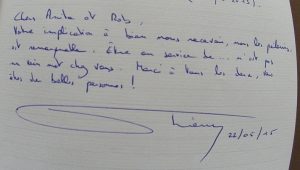 Chers Anita et Rob,
Votre implication à bien nous recevoir, nous les pèlerins,
est remarquable. Être au service de... n'est pas
un vain mot chez vous. Merci à tous les deux, vous
êtes de belles personnes !
Thierry
22/05/15